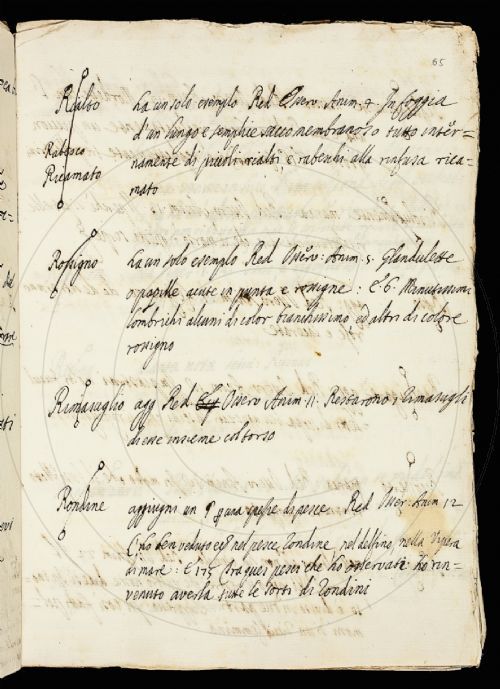 65
Rialto ha un solo esemplo Red Osserv. Anim. 4. In foggia
d'un lungo e semplice sacco membranoso tutto inter=
Rabesco
namente di piccoli rialti, e rabeschi alla rinfusa rica=
Ricamato
mato
Rossigno ha un solo esemplo Red Osserv: Anim. 5. Glandulette
o papille acute in punta e rossigne: E 6. Minutissimi
lombrichi alcuni di color bianchissimo, ed altri di colore
rossigno
Rimasuglio agg Red Osserv Anim. 11. Restarono i rimasugli
di esse insieme col torso
Rondine aggiugni un per una spezie di pesce. Red Osser: Anim 12
ho ben veduto nel pesce rondine, nel delfino, nella Vipera
di mare: E 175 Tra quei pesci che ho osservati ho rin=
venuto averla tutte le sorti di rondini